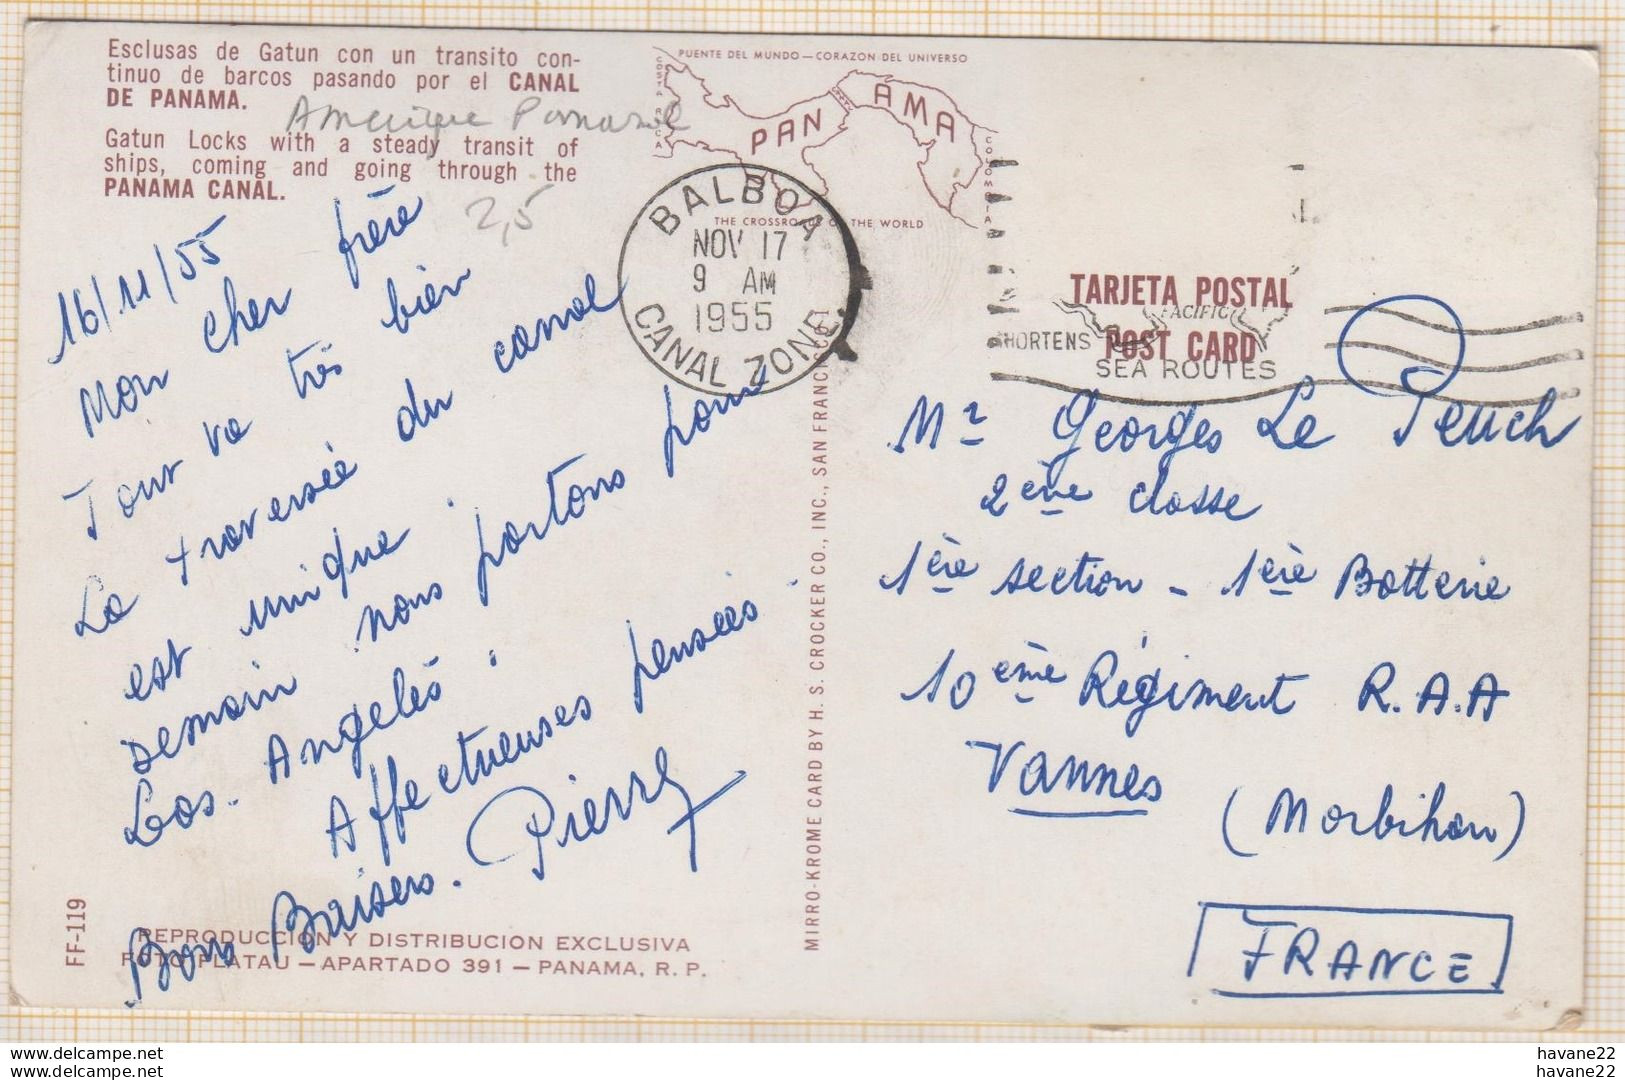 Esclusas de Gatun con un transito con-
tinuo de barcos pasando por el CANAL
DE PANAMA.
Amerique Panama
Gatun Locks with a steady transit of
ships, coming and going through the
PANAMA CANAL.
2,5
16/11/55
Mon cher frère
Tout va très bien
La traversée du canal
est unique.
Demain nous partons pour
Los-Angelès.
Affectueuses pensées.
Bons Baisers. Pierre
FF-119
REPRODUCCION Y DISTRIBUCION EXCLUSIVA
FOTO FLATAU — APARTADO 391 — PANAMA, R. P.
MIRRO-KROME CARD BY H. S. CROCKER CO., INC., SAN FRANCISCO, 1
PUENTE DEL MUNDO — CORAZON DEL UNIVERSO
COSTA RICA
PANAMA
COLOMBIA
THE CROSSROADS OF THE WORLD
BALBOA
NOV 17
9 AM
1955
CANAL ZONE
TARJETA POSTAL
PACIFIC
POST CARD
SHORTENS
SEA ROUTES
Mr Georges Le Peuch
2ème classe
1ère section - 1ère Batterie
10ème Régiment R.A.A
Vannes
(Morbihan)
FRANCE
delcampe.net
delcampe.net
havane22
havane22